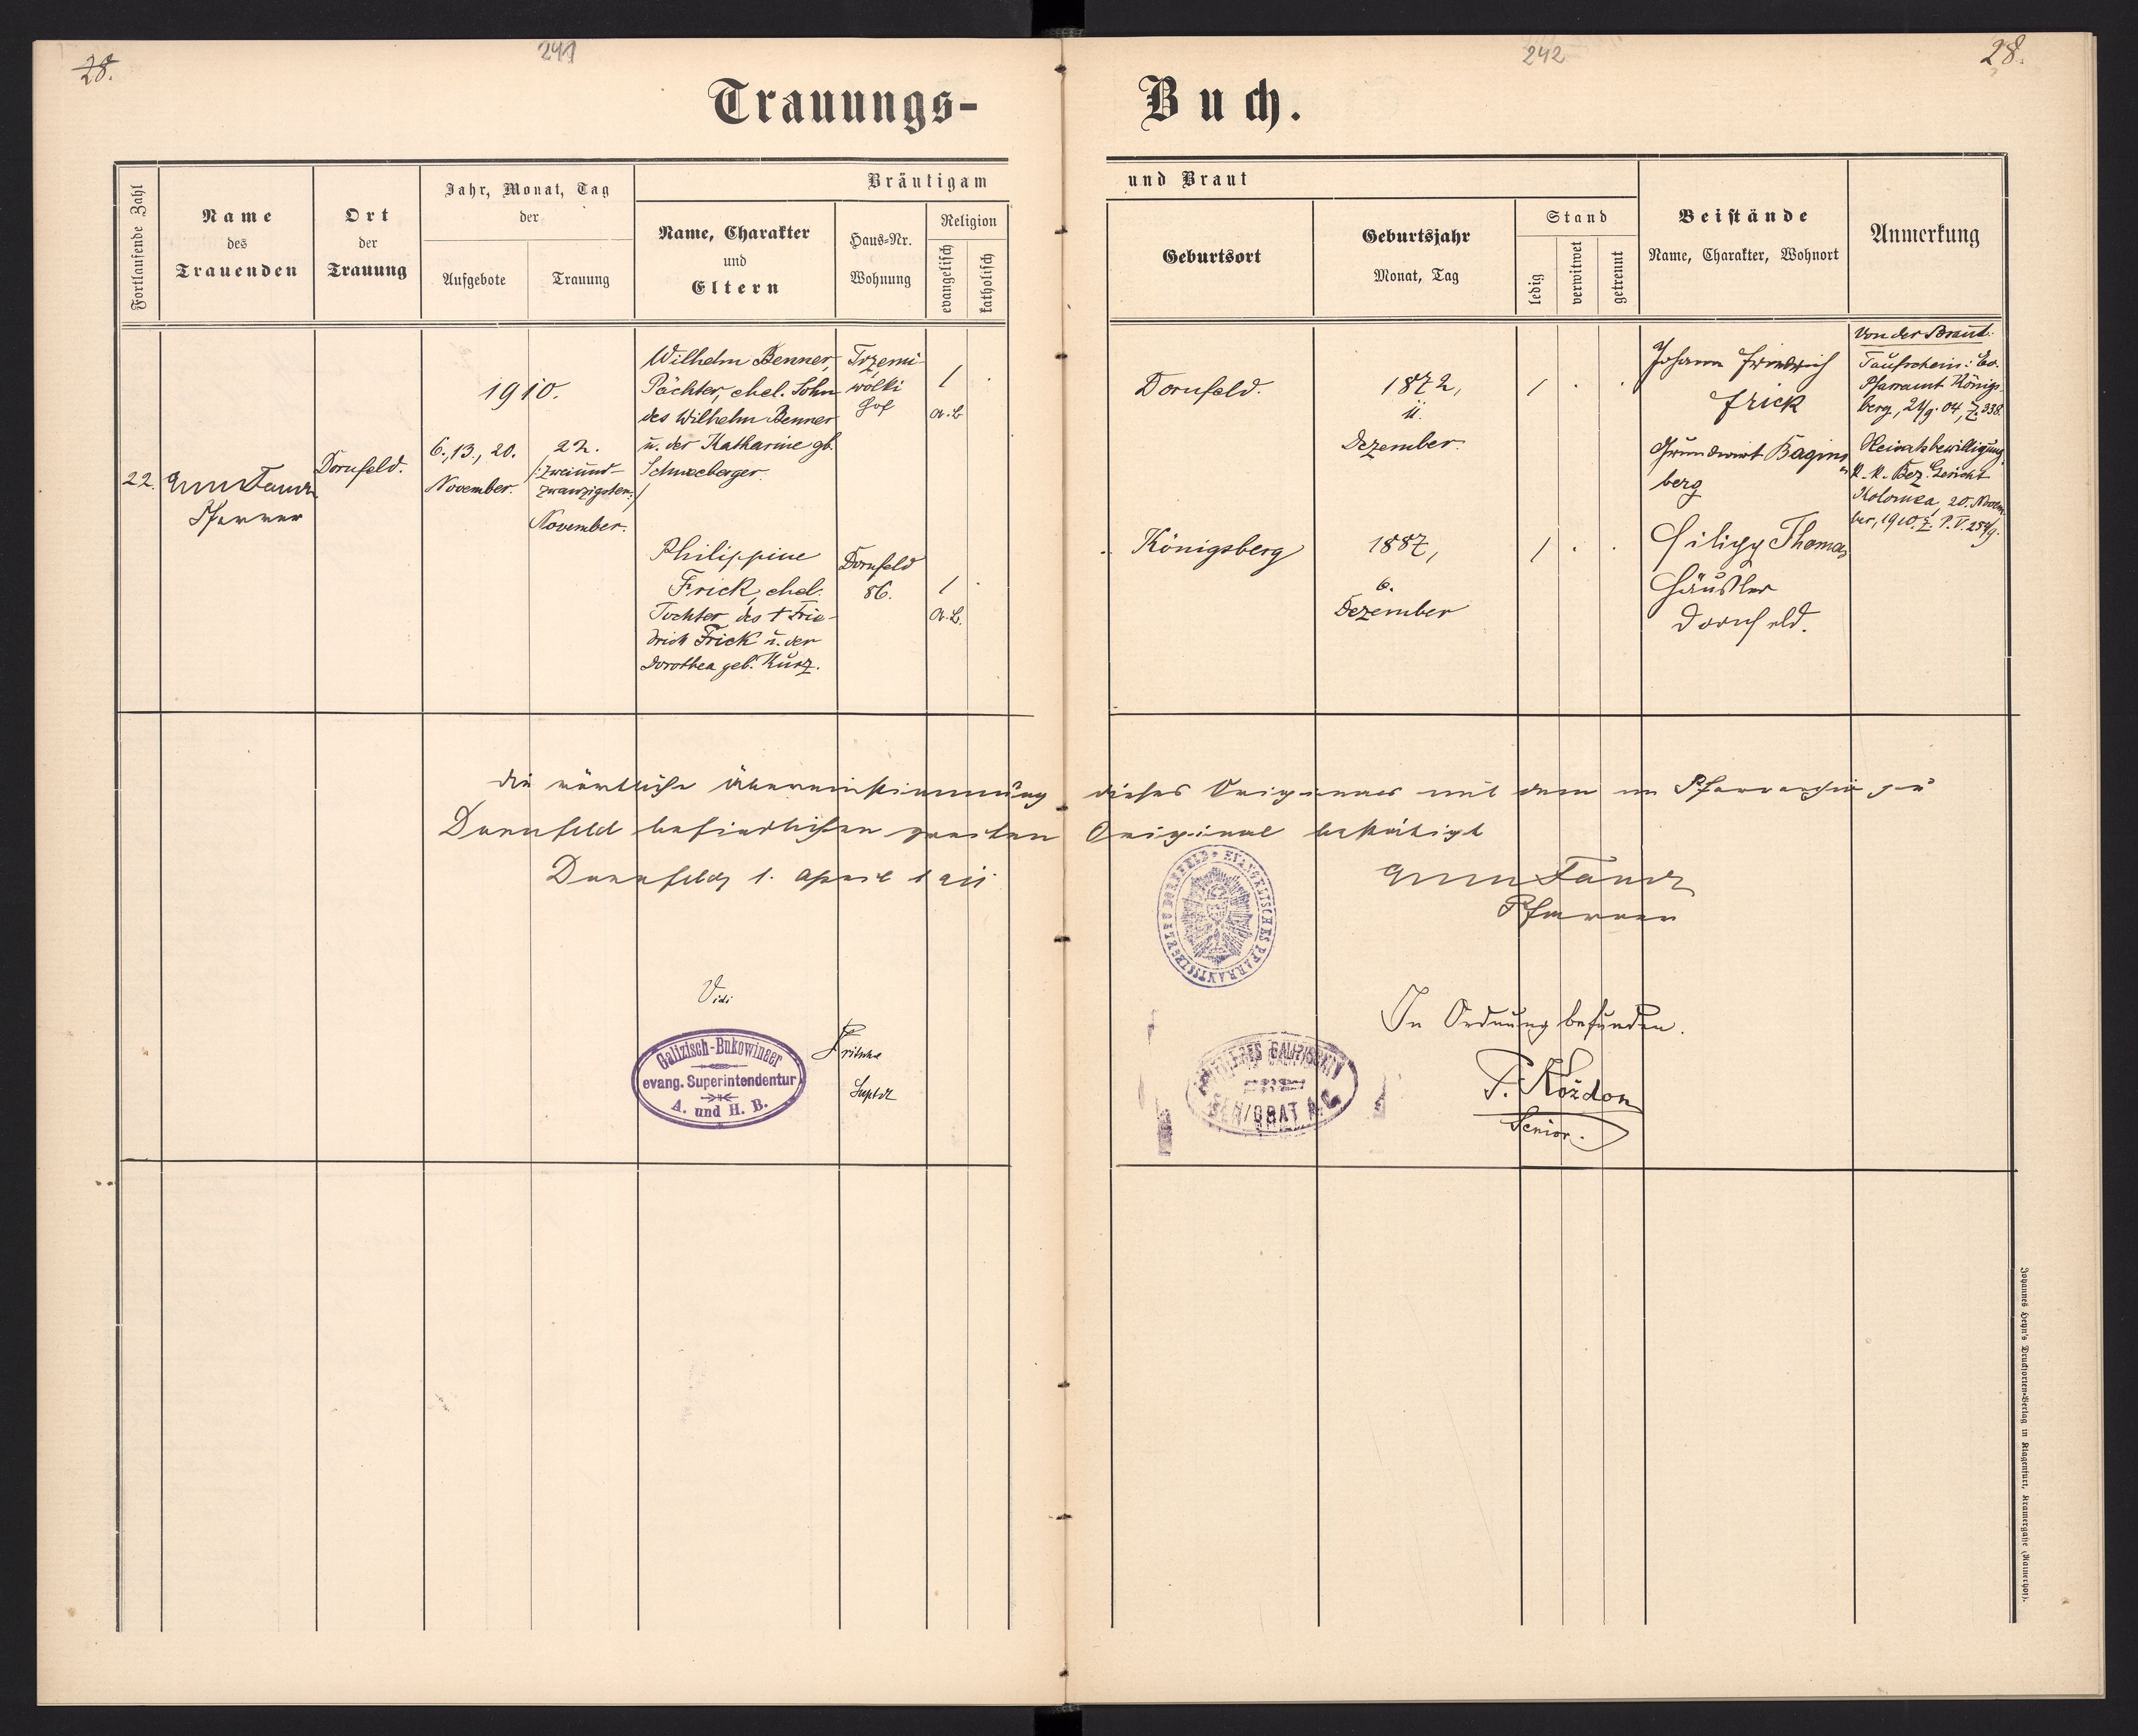 28.
241
242
28.
Trauungs-
Buch.
Fortlaufende Zahl
Name
des
Trauenden
Ort
der
Trauung
Jahr, Monat, Tag
der
Aufgebote
Trauung
Bräutigam
Name, Charakter
und
Eltern
Haus-Nr.
Wohnung
Religion
evangelisch
katholisch
und Braut
Geburtsort
Geburtsjahr
Monat, Tag
Stand
ledig
verwitwet
getrennt
Beistände
Name, Charakter, Wohnort
Anmerkung
22.
Pfarrer
Dornfeld.
1910.
6., 13., 20.
November.
22.
/:zweiund-
zwanzigsten:/
November.
Wilhelm Benner,
Pächter, ehel. Sohn
des Wilhelm Benner
u. der Katharine gb.
Schneeberger.
Trzemi-
wólki
Hof
1 .
A. B.
Philippine
Frick, ehel.
Tochter des † Frie-
drich Frick u. der
Dorothea geb. Kurz.
Dornfeld
86.
1 .
A. B.
Dornfeld.
1872,
11.
Dezember.
1 . .
Johann Friedrich
Frick
Grundwirt Bagins-
berg
Von der Braut:
Taufschein: Ev.
Pfarramt Königs-
berg, 24/9. 04, Z. 338.
Heiratsbewilligung
K. K. Bez. Gericht
Kolomea, 20. Novem-
ber, 1910. Z. P. V. 254/9.
Königsberg
1887,
6.
Dezember
1 . .
Filipp Thomas
Häusler
Dornfeld.
Die wörtliche Übereinstimmung dieses Originales mit dem im Pfarrarchiv zu
Dornfeld befindlichen zweiten Original bestätigt
Dornfeld, 1. April 1911
Pfarrer
EVANGELISCHES PFARRAMTSSIEGEL ZU DORNFELD
Vidi
Galizisch-Bukowinaer
evang. Superintendentur
A. und H. B.
Fritsche
Suptdt
In Ordnung befunden.
MITTLERES GALIZISCHES
SENIORAT A. C.
P. Koždon
Senior.
Johannes Heyn's Drucksorten-Verlag in Klagenfurt, Kramergasse (Rainerhof).